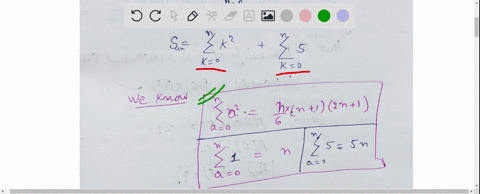 Sₙ = ∑ₖ₌₀ⁿ k² + ∑ₖ₌₀ⁿ 5
We know
∑ₐ₌₀ⁿ a² = n/6 × (n+1)(2n+1)
∑ₐ₌₀ⁿ 1 = n
∑ₐ₌₀ⁿ 5 = 5n